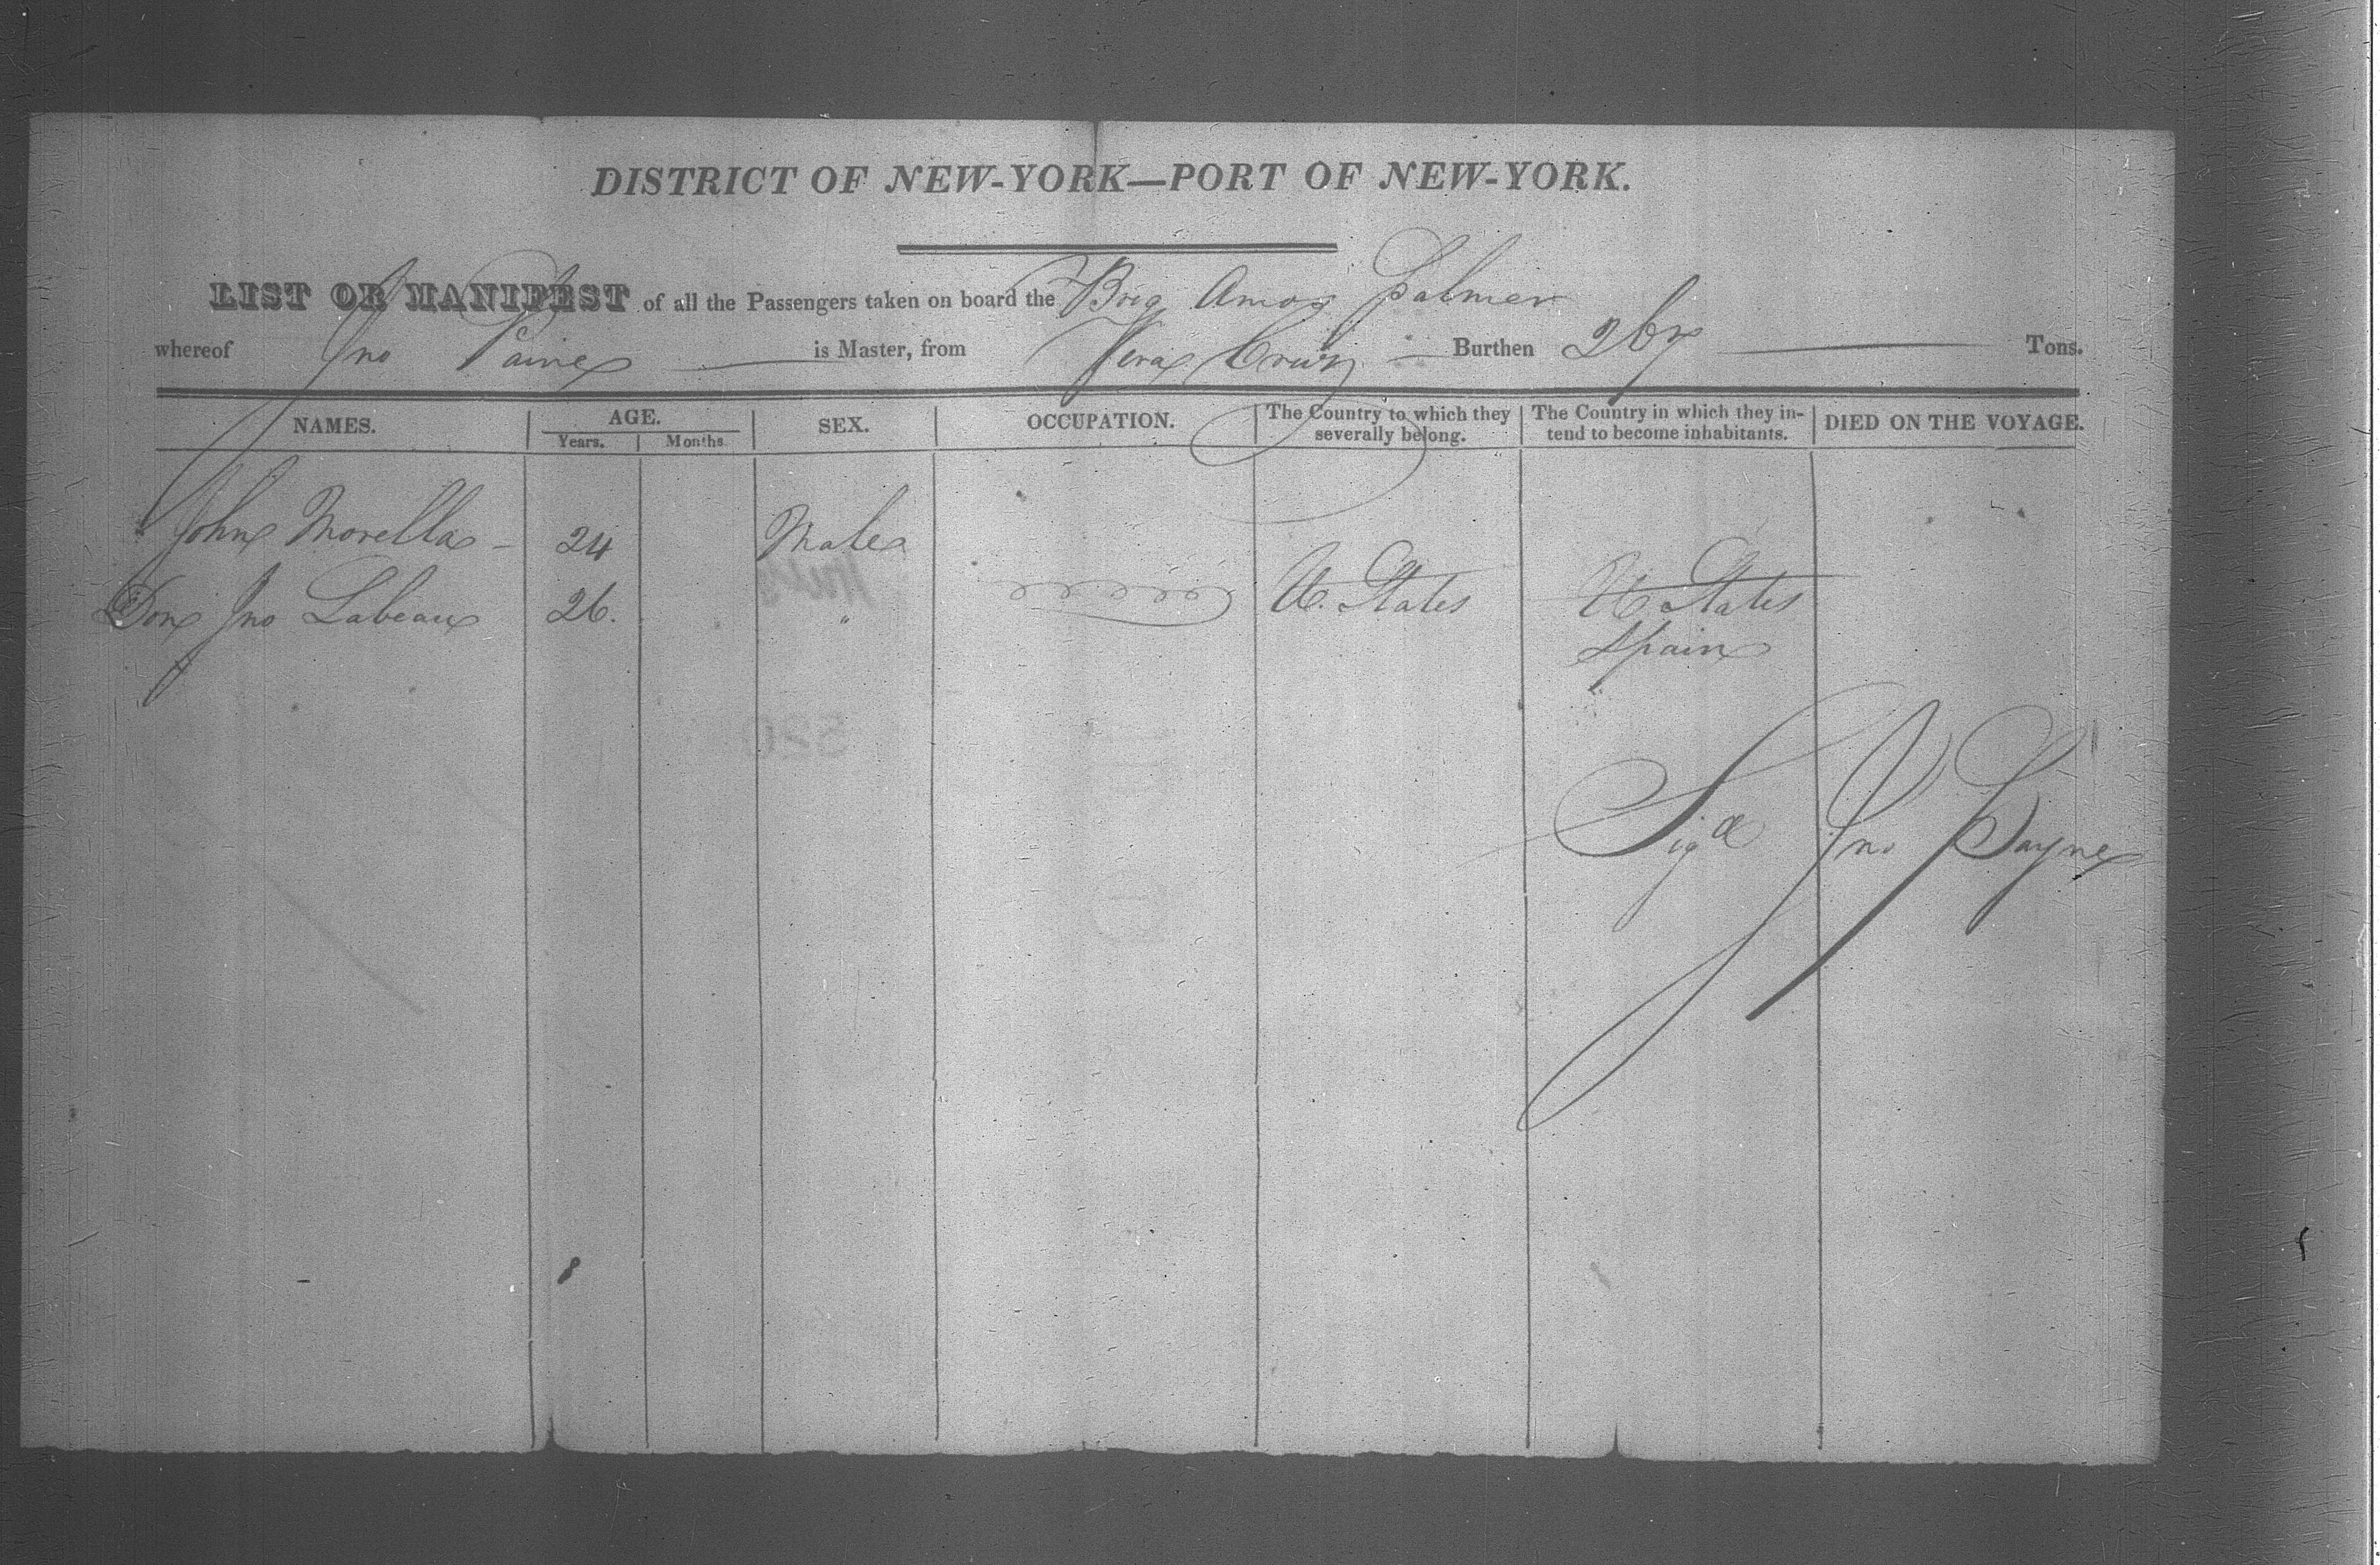 DISTRICT OF NEW-YORK—PORT OF NEW-YORK.
LIST OR MANIFEST of all the Passengers taken on board the Brig Amos Palmer
whereof Jno Paine is Master, from Vera Cruz Burthen 267 Tons.
NAMES. AGE. SEX. OCCUPATION. The Country to which they severally belong. The Country in which they in-tend to become inhabitants. DIED ON THE VOYAGE.
Years. Months
John Morella - 24 Male
Don Jno Labeau 26. " U. States U States
Spain
Sigd Jno Payne